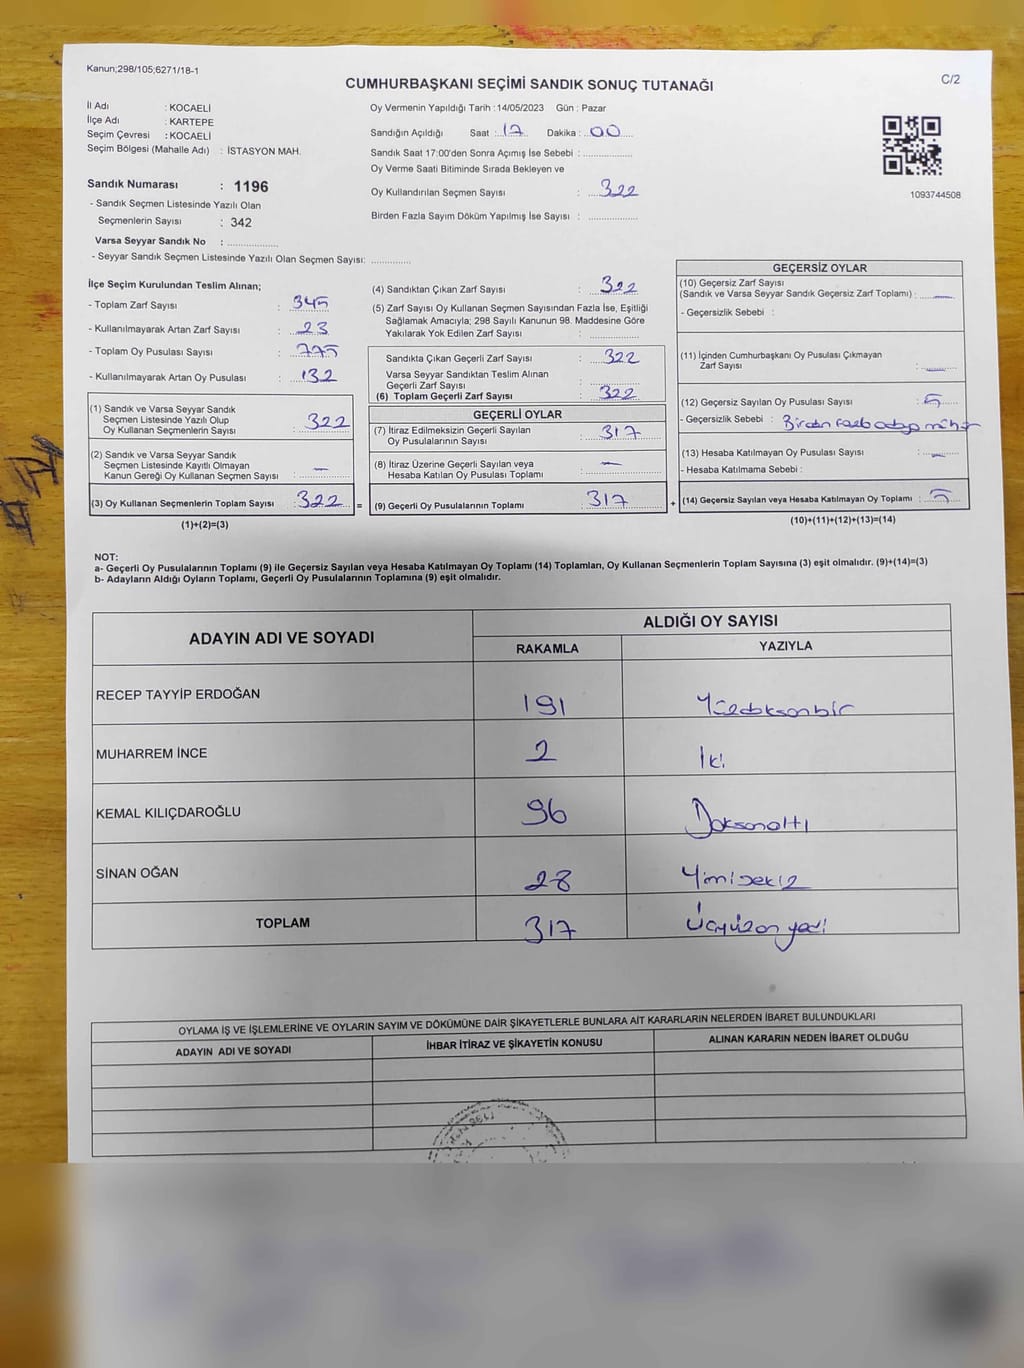 Kanun;298/105;6271/18-1
C/2
CUMHURBAŞKANI SEÇİMİ SANDIK SONUÇ TUTANAĞI
İl Adı : KOCAELİ
İlçe Adı : KARTEPE
Seçim Çevresi : KOCAELİ
Seçim Bölgesi (Mahalle Adı) : İSTASYON MAH.
Sandık Numarası : 1196
- Sandık Seçmen Listesinde Yazılı Olan
Seçmenlerin Sayısı : 342
Varsa Seyyar Sandık No : ................
- Seyyar Sandık Seçmen Listesinde Yazılı Olan Seçmen Sayısı: .............
Oy Vermenin Yapıldığı Tarih :14/05/2023 Gün : Pazar
Sandığın Açıldığı Saat : 17 Dakika : 00
Sandık Saat 17:00'den Sonra Açımış İse Sebebi : .................
Oy Verme Saati Bitiminde Sırada Bekleyen ve
Oy Kullandırılan Seçmen Sayısı : 322
Birden Fazla Sayım Döküm Yapılmış İse Sayısı : .................
1093744508
İlçe Seçim Kurulundan Teslim Alınan;
- Toplam Zarf Sayısı : 345
- Kullanılmayarak Artan Zarf Sayısı : 23
- Toplam Oy Pusulası Sayısı :
- Kullanılmayarak Artan Oy Pusulası : 132
(1) Sandık ve Varsa Seyyar Sandık
Seçmen Listesinde Yazılı Olup
Oy Kullanan Seçmenlerin Sayısı : 322
(2) Sandık ve Varsa Seyyar Sandık
Seçmen Listesinde Kayıtlı Olmayan
Kanun Gereği Oy Kullanan Seçmen Sayısı : —
(3) Oy Kullanan Seçmenlerin Toplam Sayısı : 322 =
(1)+(2)=(3)
(4) Sandıktan Çıkan Zarf Sayısı : 322
(5) Zarf Sayısı Oy Kullanan Seçmen Sayısından Fazla İse, Eşitliği
Sağlamak Amacıyla; 298 Sayılı Kanunun 98. Maddesine Göre
Yakılarak Yok Edilen Zarf Sayısı : .................
Sandıkta Çıkan Geçerli Zarf Sayısı : 322
Varsa Seyyar Sandıktan Teslim Alınan
Geçerli Zarf Sayısı : .................
(6) Toplam Geçerli Zarf Sayısı : 322
GEÇERLİ OYLAR
(7) İtiraz Edilmeksizin Geçerli Sayılan
Oy Pusulalarının Sayısı : 317
(8) İtiraz Üzerine Geçerli Sayılan veya
Hesaba Katılan Oy Pusulası Toplamı : —
(9) Geçerli Oy Pusulalarının Toplamı : 317 +
GEÇERSİZ OYLAR
(10) Geçersiz Zarf Sayısı
(Sandık ve Varsa Seyyar Sandık Geçersiz Zarf Toplamı) : —
- Geçersizlik Sebebi :
(11) İçinden Cumhurbaşkanı Oy Pusulası Çıkmayan
Zarf Sayısı : —
(12) Geçersiz Sayılan Oy Pusulası Sayısı : 5
- Geçersizlik Sebebi : Birden fazla adaya mühür
(13) Hesaba Katılmayan Oy Pusulası Sayısı : —
- Hesaba Katılmama Sebebi :
(14) Geçersiz Sayılan veya Hesaba Katılmayan Oy Toplamı : 5
(10)+(11)+(12)+(13)=(14)
NOT:
a- Geçerli Oy Pusulalarının Toplamı (9) ile Geçersiz Sayılan veya Hesaba Katılmayan Oy Toplamı (14) Toplamları, Oy Kullanan Seçmenlerin Toplam Sayısına (3) eşit olmalıdır. (9)+(14)=(3)
b- Adayların Aldığı Oyların Toplamı, Geçerli Oy Pusulalarının Toplamına (9) eşit olmalıdır.
ADAYIN ADI VE SOYADI ALDIĞI OY SAYISI
RAKAMLA YAZIYLA
RECEP TAYYİP ERDOĞAN 191 Yüzdoksanbir
MUHARREM İNCE 2 İki
KEMAL KILIÇDAROĞLU 96 Doksanaltı
SİNAN OĞAN 28 Yimisekiz
TOPLAM 317 Üçyüzon yedi
OYLAMA İŞ VE İŞLEMLERİNE VE OYLARIN SAYIM VE DÖKÜMÜNE DAİR ŞİKAYETLERLE BUNLARA AİT KARARLARIN NELERDEN İBARET BULUNDUKLARI
ADAYIN ADI VE SOYADI İHBAR İTİRAZ VE ŞİKAYETİN KONUSU ALINAN KARARIN NEDEN İBARET OLDUĞU